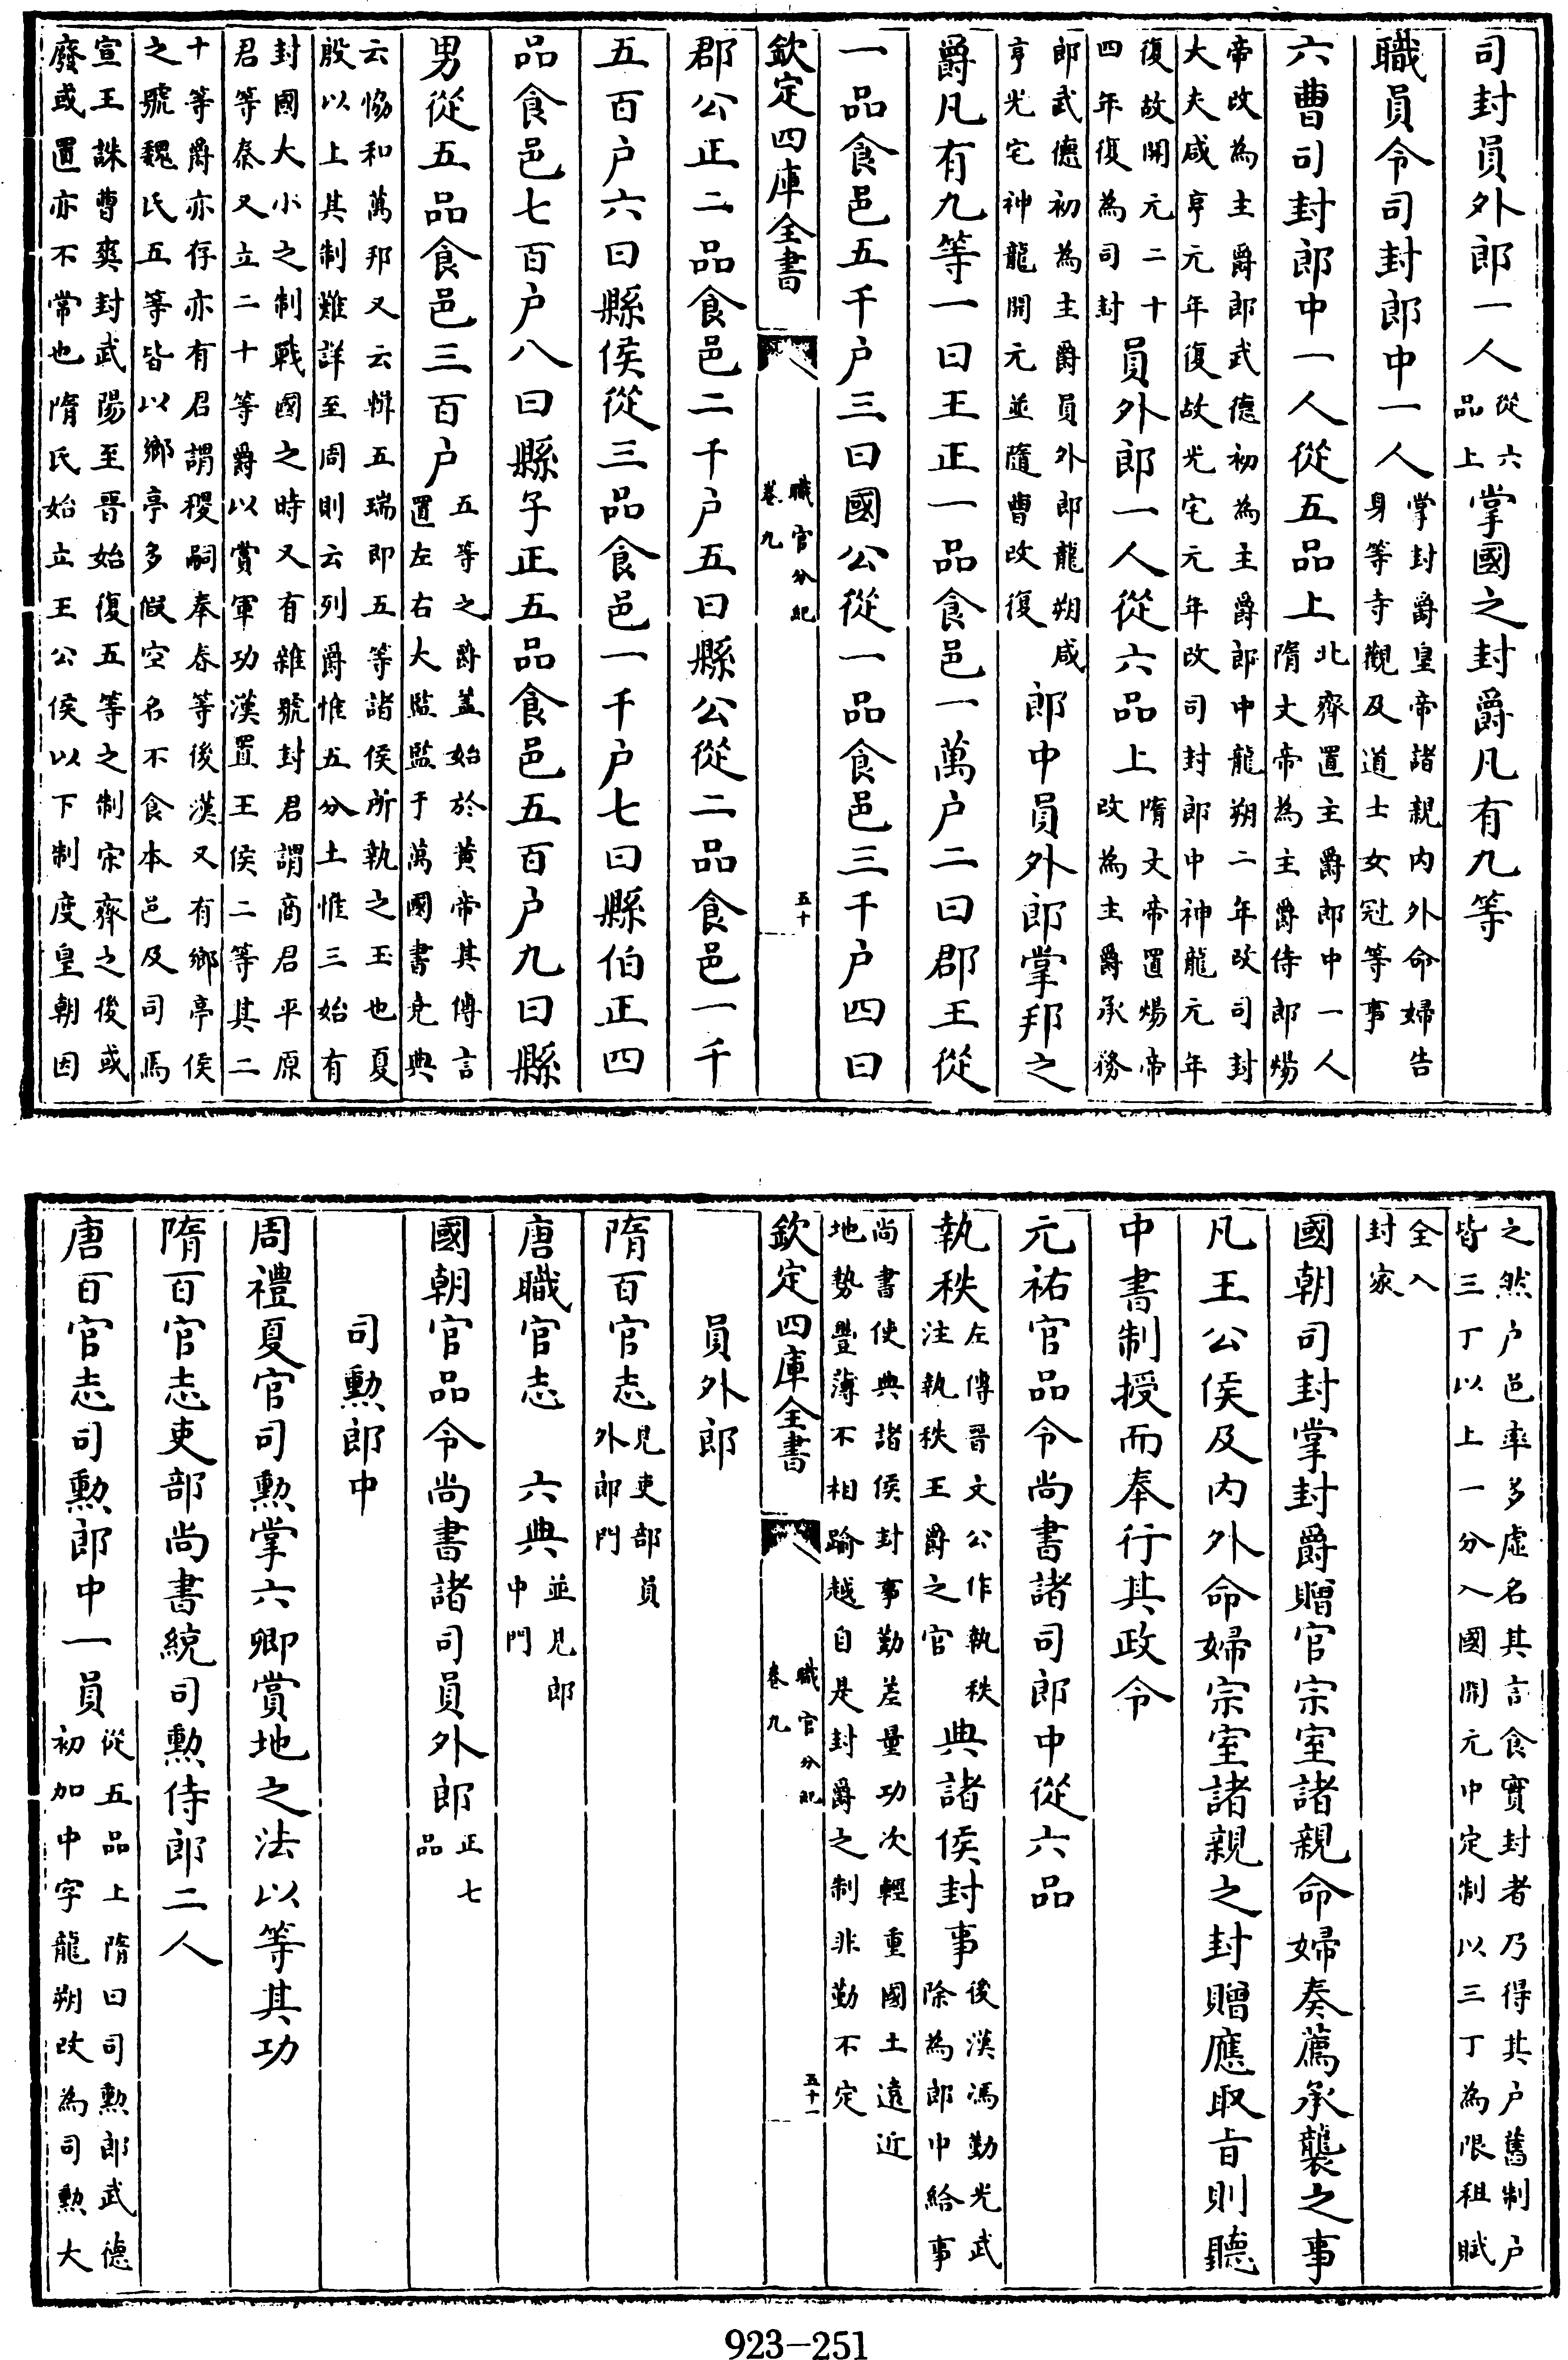 司封員外郎一人從六品上掌國之封爵凡有九等
職員令司封郎中一人掌封爵皇帝諸親内外命婦告身等寺觀及道士女冠等事
六曹司封郎中一人從五品上北齊置主爵郎中一人隋文帝為主爵侍郎煬
帝改為主爵郎武德初為主爵郎中龍朔二年改司封大夫咸亨元年復故光宅元年改司封郎中神龍元年
復故開元二十四年復為司封員外郎一人從六品上隋文帝置煬帝改為主爵承務
郎武德初為主爵員外郎龍朔咸亨光宅神龍開元並隨曹改復郎中員外郎掌邦之
爵凡有九等一曰王正一品食邑一萬户二曰郡王從
一品食邑五千户三曰國公從一品食邑三千户四曰
欽定四庫全書 職官分紀卷九 五十
郡公正二品食邑二千户五曰縣公從二品食邑一千
五百户六曰縣侯從三品食邑一千户七曰縣伯正四
品食邑七百户八曰縣子正五品食邑五百户九曰縣
男從五品食邑三百户五等之爵盖始於黄帝其傳言置左右大監監于萬國書堯典
云協和萬邦又云輯五瑞即五等諸侯所執之玉也夏殷以上其制難詳至周則云列爵惟五分土惟三始有
封國大小之制戰國之時又有雜號封君謂商君平原君等秦又立二十等爵以賞軍功漢置王侯二等其二
十等爵亦存亦有君謂稷嗣奉春等後漢又有鄉亭侯之號魏氏五等皆以鄉亭多假空名不食本邑及司馬
宣王誅曹爽封武陽至晉始復五等之制宋齊之後或廢或置亦不常也隋氏始立王公侯以下制度皇朝因
之然户邑率多虛名其言食實封者乃得其户舊制户皆三丁以上一分入國開元中定制以三丁為限租賦
全入封家
國朝司封掌封爵贈官宗室諸親命婦奏薦承襲之事
凡王公侯及内外命婦宗室諸親之封贈應取㫖則聽
中書制授而奉行其政令
元祐官品令尚書諸司郎中從六品
執秩左傳晉文公作執秩注執秩王爵之官典諸侯封事後漢馮勤光武除為郎中給事
尚書使典諸侯封事勤差量功次輕重國土遠近地勢豐薄不相踰越自是封爵之制非勤不定
欽定四庫全書 職官分紀卷九 五十一
員外郎
隋百官志見吏部員外郎門
唐職官志 六典並見郎中門
國朝官品令尚書諸司員外郎正七品
司勲郎中
周禮夏官司勲掌六卿賞地之法以等其功
隋百官志吏部尚書統司勲侍郎二人
唐百官志司勲郎中一員從五品上隋曰司勲郎武德初加中字龍朔改為司勲大
923-251